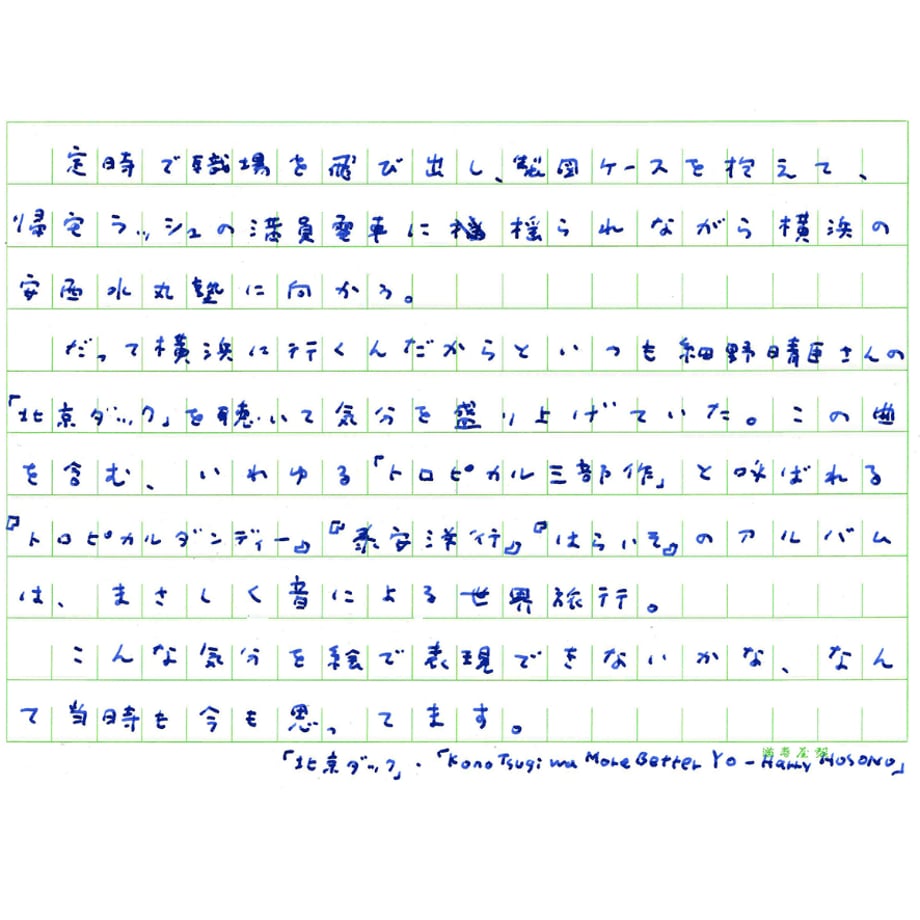 定時で職場を飛び出し、製図ケースを抱えて、
帰宅ラッシュの満員電車に揺られながら横浜の
安西水丸塾に向かう。
だって横浜に行くんだからといつも細野晴臣さんの
「北京ダック」を聴いて気分を盛り上げていた。この曲
を含む、いわゆる「トロピカル三部作」と呼ばれる
『トロピカルダンディー』『泰安洋行』『はらいそ』のアルバム
は、まさしく音による世界旅行。
こんな気分を絵で表現できないかな、なん
て当時も今も思ってます。
満寿屋製
「北京ダック」・「Kono Tsugi wa More Better Yo - Harry HOSONO」